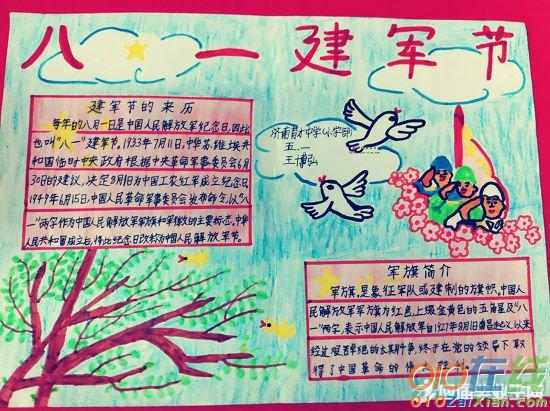 八一建军节
建军节的来历
每年的八月一日是中国人民解放军纪念日,因此
也叫“八一”建军节。1933年7月11日,中华苏维埃共
和国临时中央政府根据中央革命军事委员会6月
30日的建议,决定8月1日为中国工农红军成立纪念日。
1949年6月15日,中国人民革命军事委员会发布命令,以“八
一”两字作为中国人民解放军军旗和军徽的主要标志。中华
人民共和国成立后,将此纪念日改称为中国人民解放军建军节。
济南育才中学(小学部)
五.一
王博弘
军旗简介
军旗,是象征军队或建制的旗帜,中国人
民解放军军旗为红色,上缀金黄色的五角星及“八
一”两字,表示中国人民解放军自1927年8月1日南昌起义以来
经过艰苦卓绝的长期斗争,终于在党的领导下取
得了中国革命的伟大
gio在线
gtozaixian.com